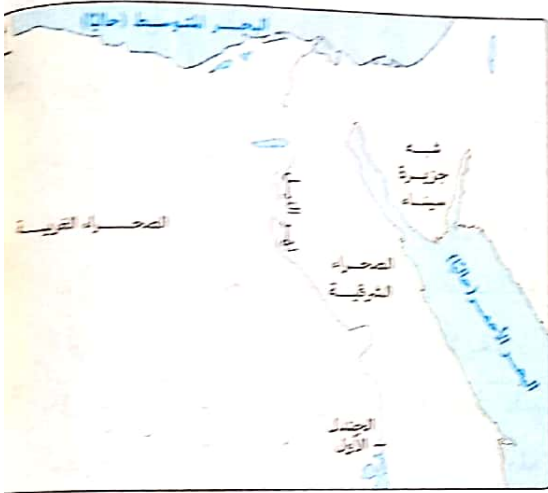 البحر المتوسط (حاليًا)
شبه
جزيرة
سيناء
الصحراء الغربية
الصحراء
الشرقية
البحر الأحمر (حاليًا)
الجندل
الأول